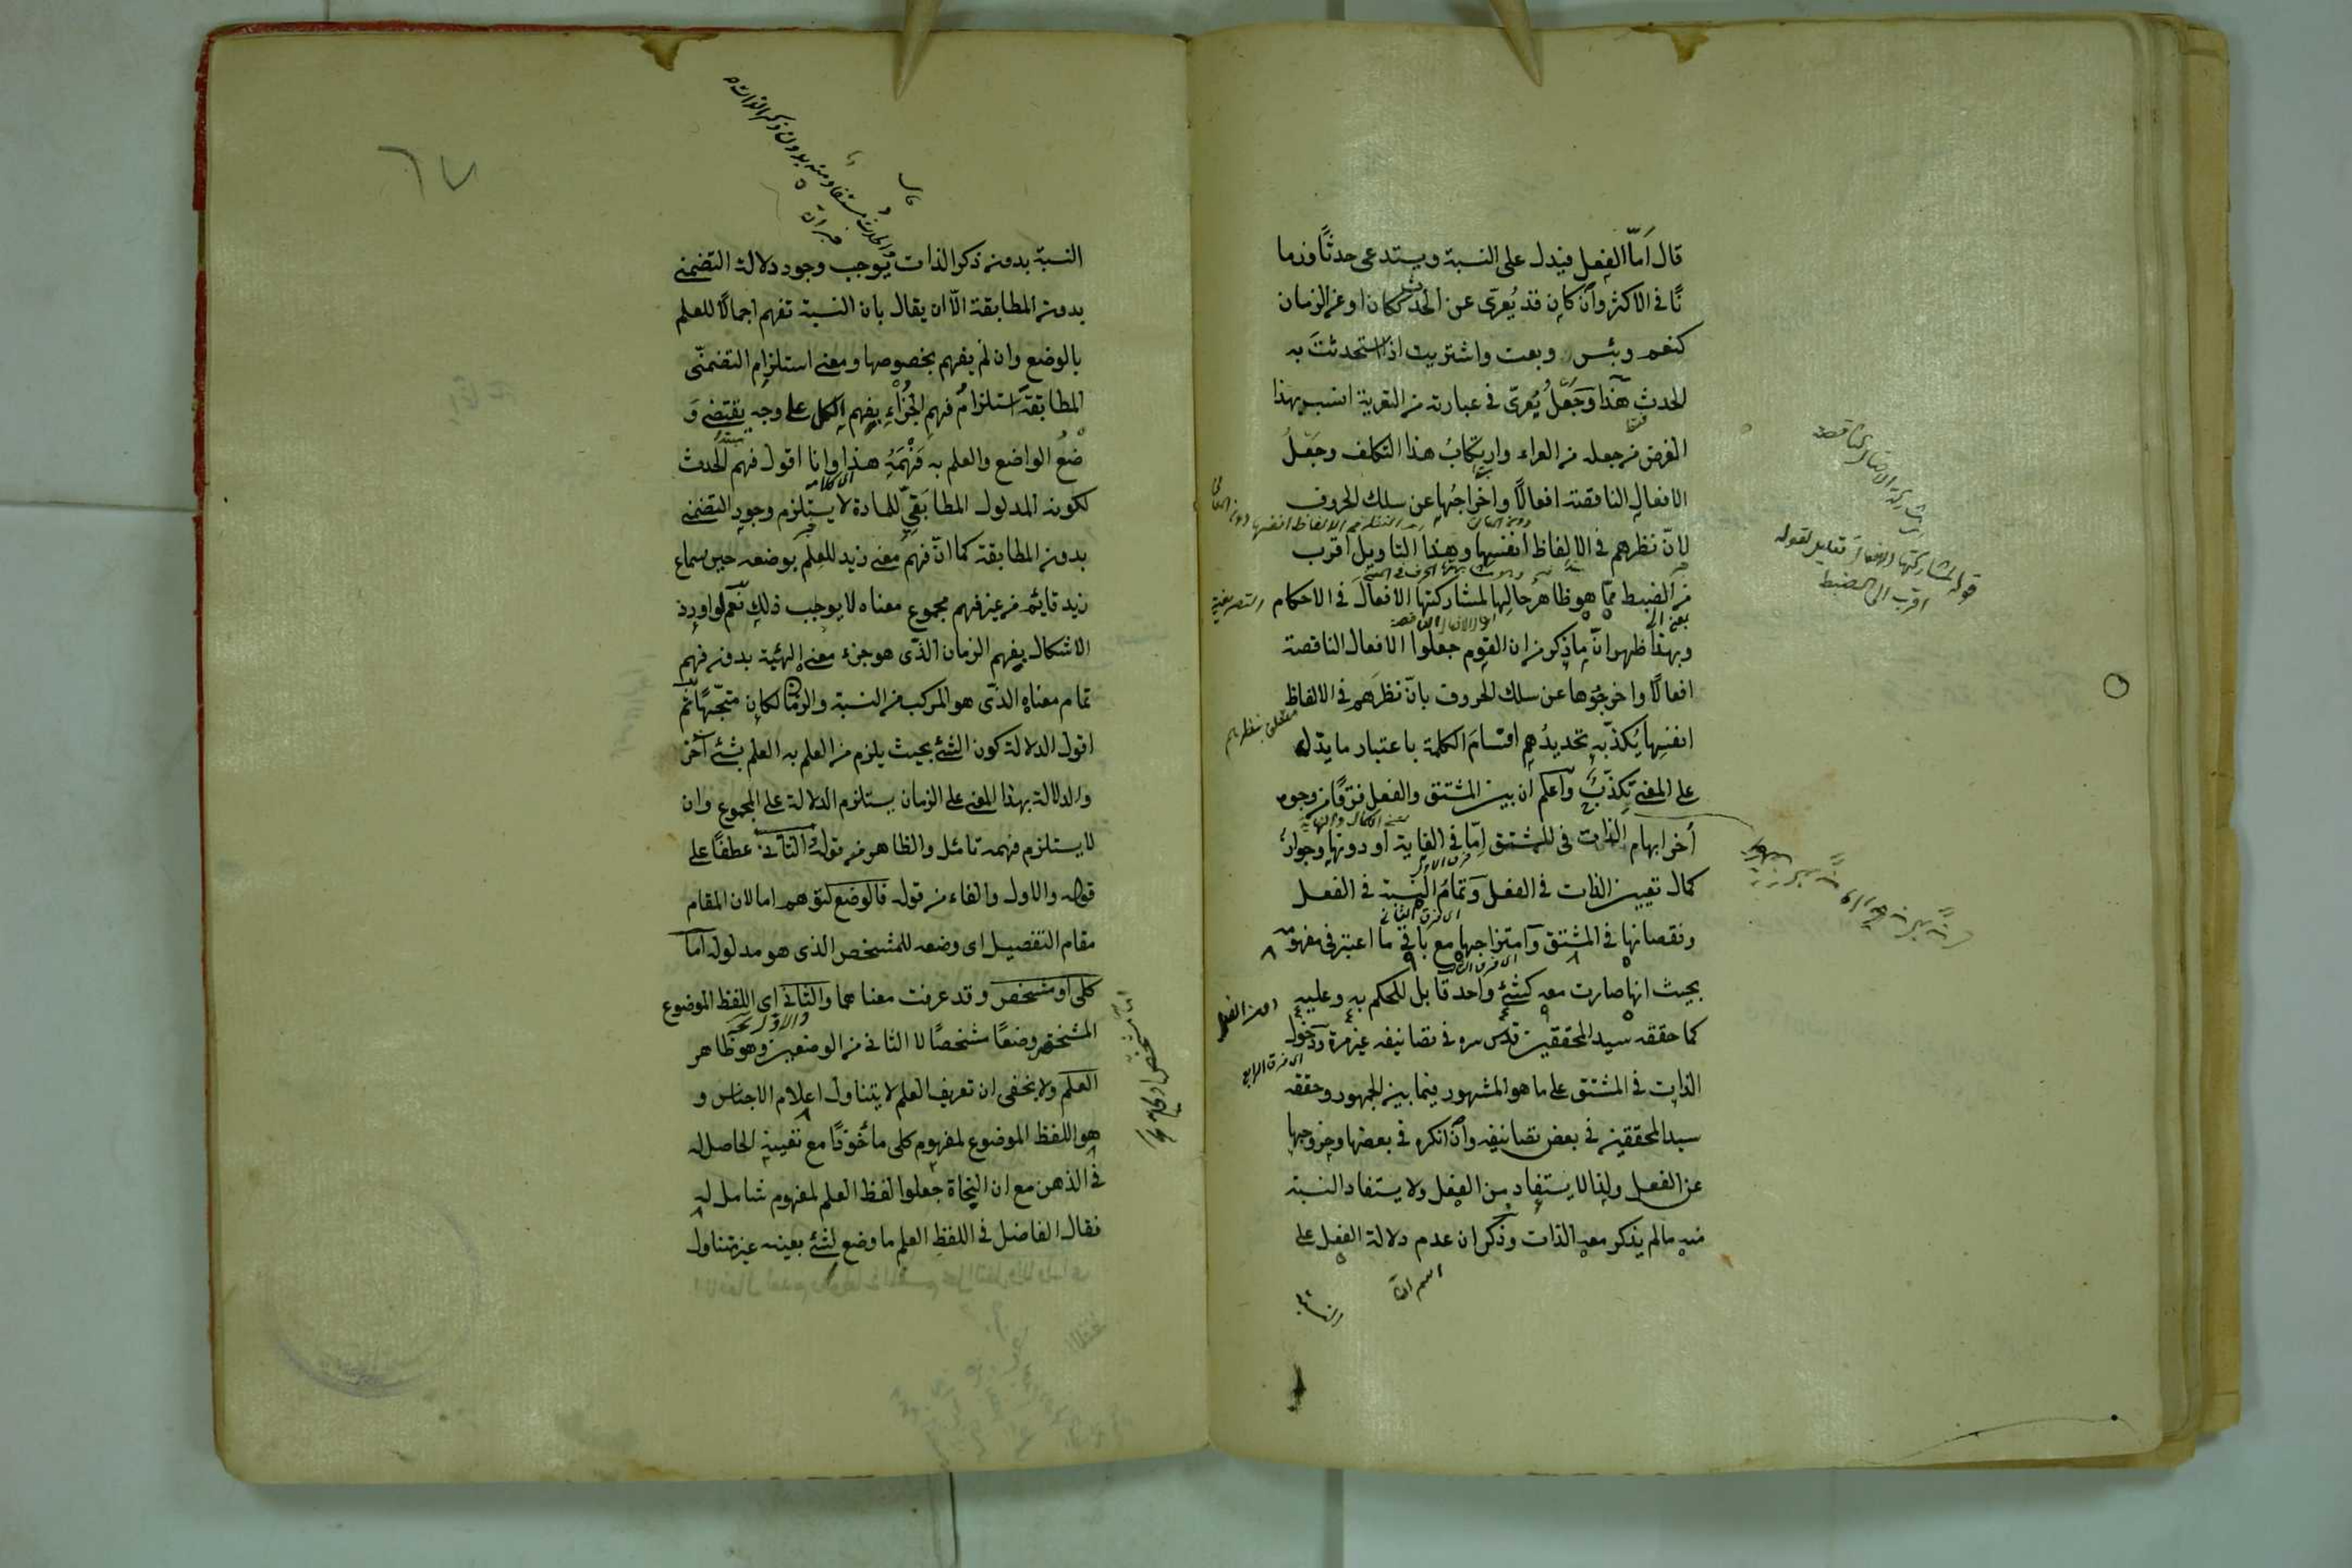 قال اَمّا الفعل فيدل على النسبة ويستدعى حدثًا وزما
نًا فى الاكثر وان كان قد يُعرّى عن الحدث ككان او عن الزمان
كنعم وبئس وبعت واشتريت اذا استحدثت به
الحدث هذا وجَعْلُ يُعرّى فى عبارته من التعرية انسب بهذا
الغرض من جعله من العراء وارتكابُ هذا التكلف وجَعْلُ
الافعال الناقصة افعالًا واخراجُها عن سلك الحروف
لانّ نظرهم فى الالفاظ انفسها وهذا التاويل اقرب
من الضبط ممّا هو ظاهر حالها لمشاركتها الافعالَ فى الاحكام التصريفية
وبهذا ظهر انّ ما ذكر من ان القوم جعلوا الافعال الناقصة
افعالًا واخرجوها عن سلك الحروف بانّ نظرَهم فى الالفاظ
انفسِها يُكذّبه تحديدُهم اقسامَ الكلمة باعتبار ما يدل
على المعنى تكذب واعلم ان بين المشتق والفعل فرقًا من وجوه
اُخر ابهام الذات فى المشتق اِمّا فى الغاية او دونها وجوازُ
كمال تعيين الذات فى الفعل وتمامُ النسبة فى الفعل
ونقصانها فى المشتق وامتزاجها مع باقى ما اعتبر فى مفهومه
بحيث انها صارت معه كشئ واحد قابل للحكم به وعليه
كما حققه سيد المحققين قدس سره فى تصانيفه غير مرة ودخول
الذات فى المشتق على ما هو المشهور فيما بين الجمهور وحققه
سيد المحققين فى بعض تصانيفه وان انكره فى بعضها وخروجها
عن الفعل ولذا لا يستفاد من الفعل ولا يستفاد النسبة
منه ما لم يذكر معه الذات وذكر ان عدم دلالة الفعل على
قوله لمشاركتها الافعال تعليل لقوله
اقرب الى الضبط
متعلق بنظرهم
اى فرق الرابع
٦٧
النسبة بدون ذكر الذات يوجب وجود دلالة التضمنى
بدون المطابقة الّا ان يقال بان النسبة تفهم اجمالًا للعلم
بالوضع وان لم يفهم بخصوصها ومعنى استلزام التضمنّى
المطابقة استلزامُ فهمِ الجُزْءِ بفهم الكل على وجه يقتضى وَ
ضْعُ الواضع والعلم به فَهْمَهُ هذا وانا اقول فهم الحدث
لكونه المدلول المطابَقِىّ للمادة لا يستلزم وجود التضمنى
بدون المطابقة كما انّ فهمَ معنى زيد للعلم بوضعه حين سماع
زيد قايم من غير فهم مجموع معناه لا يوجب ذلك نعم لو اورد
الاشكال بفهم الزمان الذى هو جزء معنى الهيئة بدون فهم
تمام معناه الذى هو المركب من النسبة والزمان لكان متجّهًا ثم
اقول الدلالة كون الشئ بحيث يلزم من العلم به العلم بشئ آخر
والدلالة بهذا المعنى على الزمان يستلزم الدلالة على المجموع وان
لا يستلزم فهمه تامّل والظاهر من قوله والثانى عطفًا على
قوله والاول والفاء من قوله فالوضع لتوهم اما لان المقام
مقام التفصيل اى وضعه للمشخص الذى هو مدلوله اما
كلى او مشخص وقد عرفت معناهما والثانى اى اللفظ الموضوع
المشخص وضعًا مشخصًا لا الثانى من الوضعين وهو ظاهر
العلم ولا يخفى ان تعريف العلم لا يتناول اعلام الاجناس و
هو اللفظ الموضوع لمفهوم كلى ماخوذًا مع تعيينه الحاصل له
فى الذهن مع ان النحاة جعلوا لفظ العلم لمفهوم شامل له
فقال الفاضل فى اللفظ العلم ما وضع لشئ بعينه غير متناول